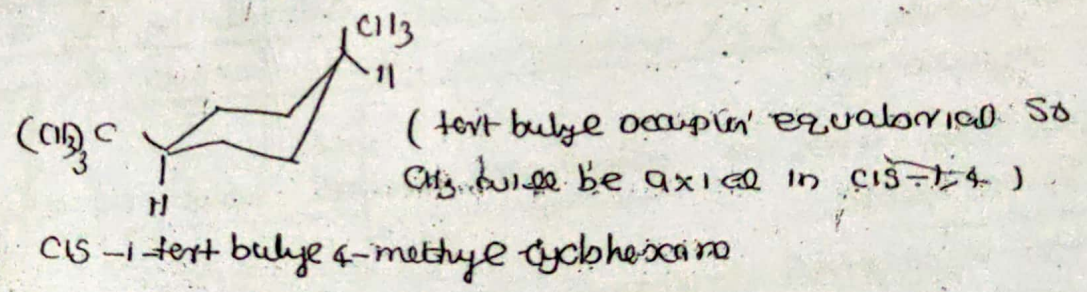 CH3
H
(CH3)3 C
( tert butyl occupies equatorial so
CH3 will be axial in cis-1,4 )
H
Cis -1-tert butyl 4-methyl cyclohexane